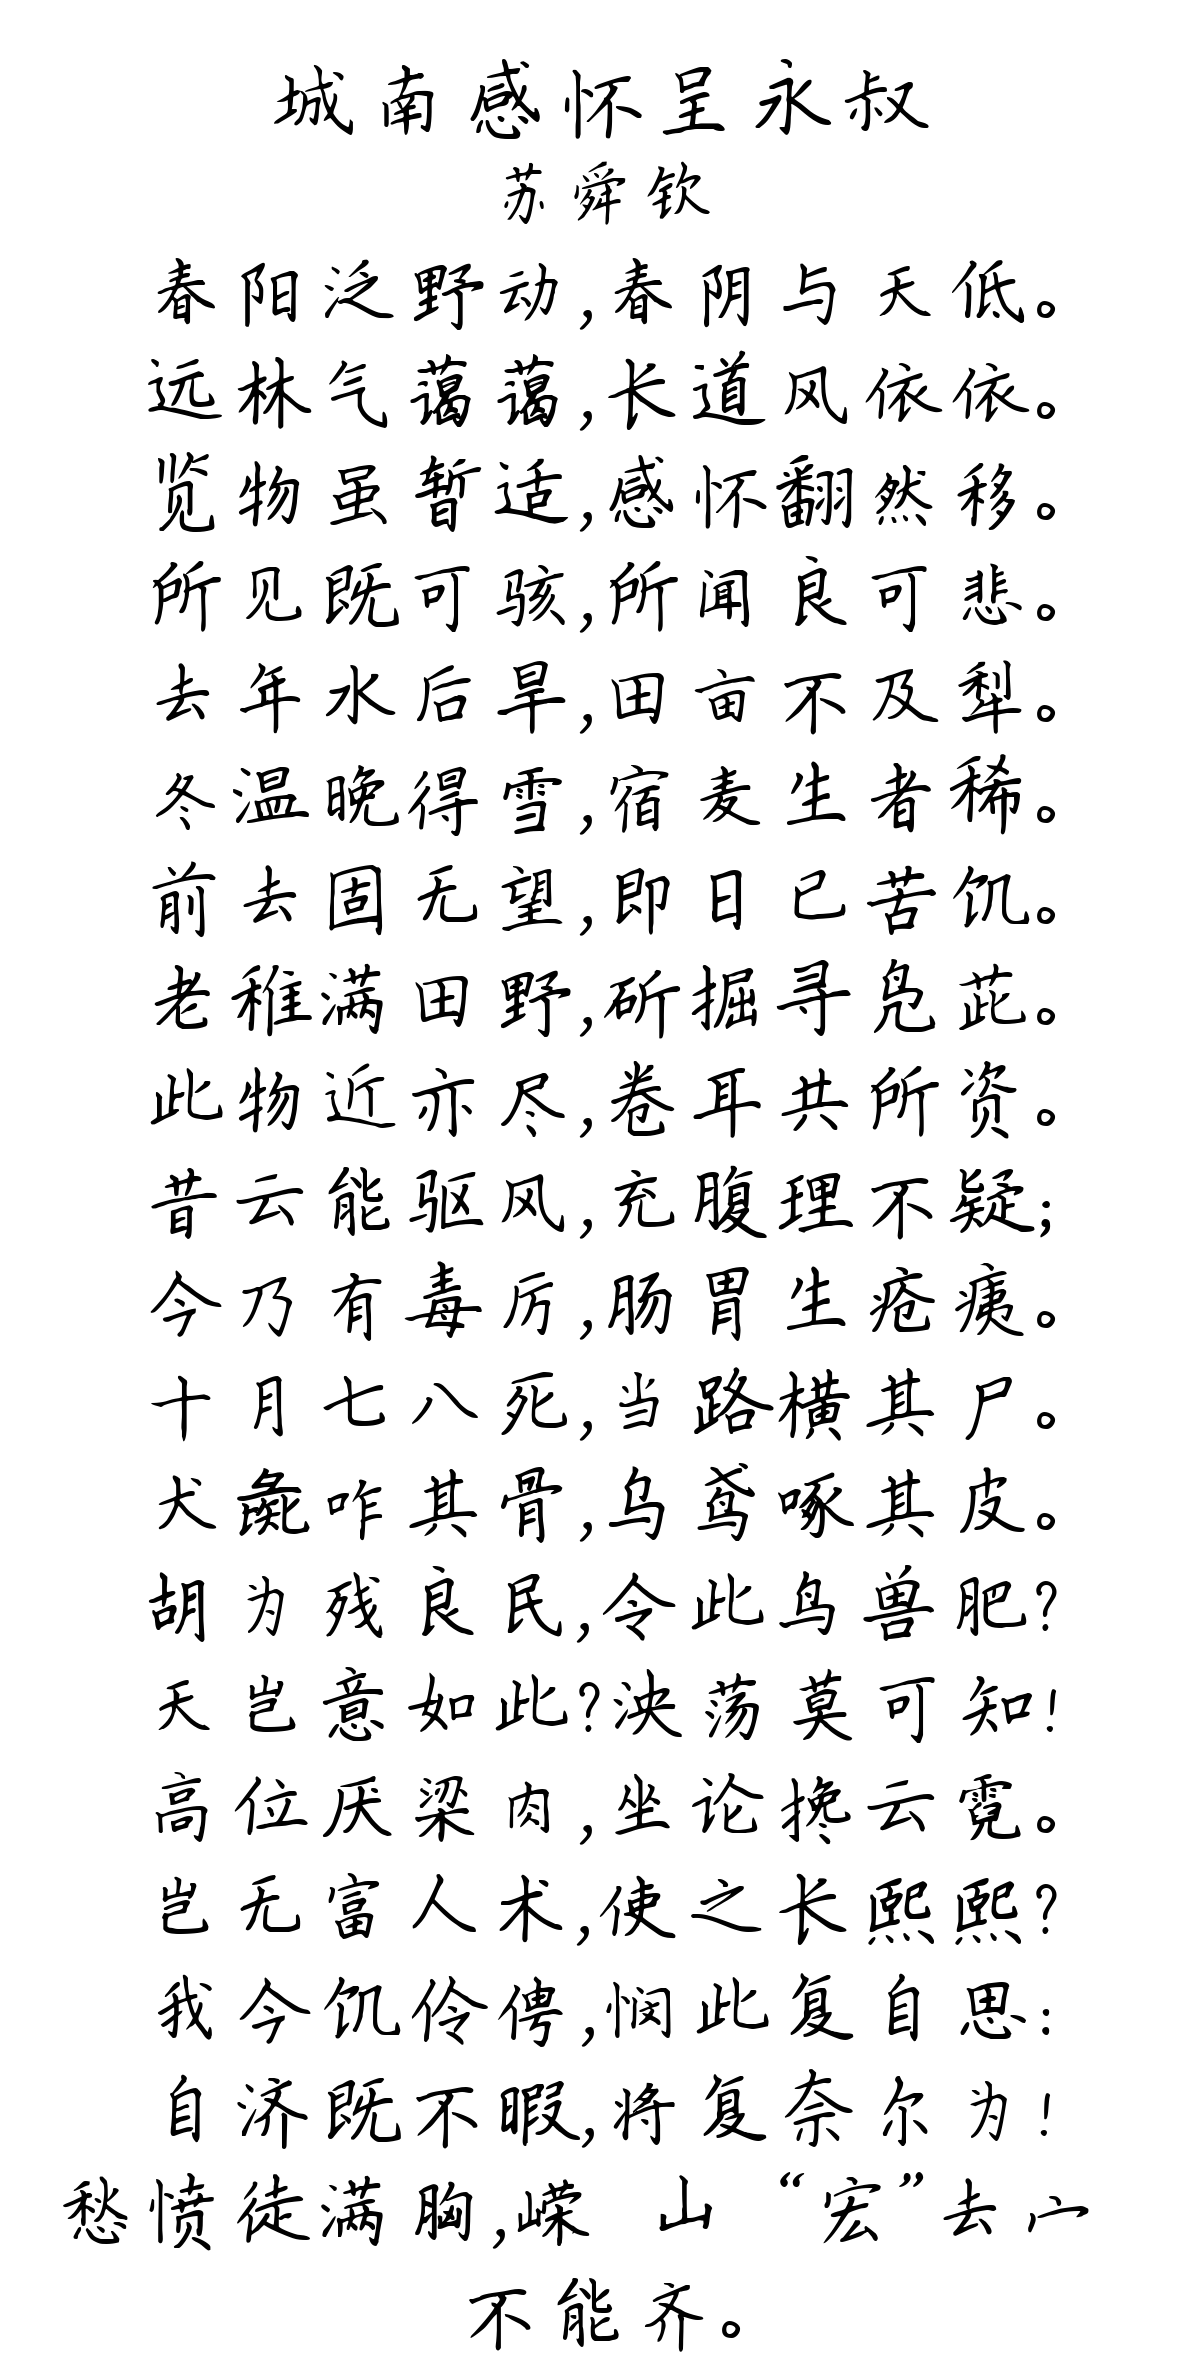 城南感怀呈永叔
苏舜钦
春阳泛野动,春阴与天低。
远林气蔼蔼,长道风依依。
览物虽暂适,感怀翻然移。
所见既可骇,所闻良可悲。
去年水后旱,田亩不及犁。
冬温晚得雪,宿麦生者稀。
前去固无望,即日已苦饥。
老稚满田野,斫掘寻凫茈。
此物近亦尽,卷耳共所资。
昔云能驱风,充腹理不疑;
今乃有毒厉,肠胃生疮痍。
十月七八死,当路横其尸。
犬彘咋其骨,乌鸢啄其皮。
胡为残良民,令此鸟兽肥?
天岂意如此?泱荡莫可知!
高位厌梁肉,坐论搀云霓。
岂无富人术,使之长熙熙?
我今饥伶俜,悯此复自思:
自济既不暇,将复奈尔为!
愁愤徒满胸,嵘 山 “宏”去宀
不能齐。